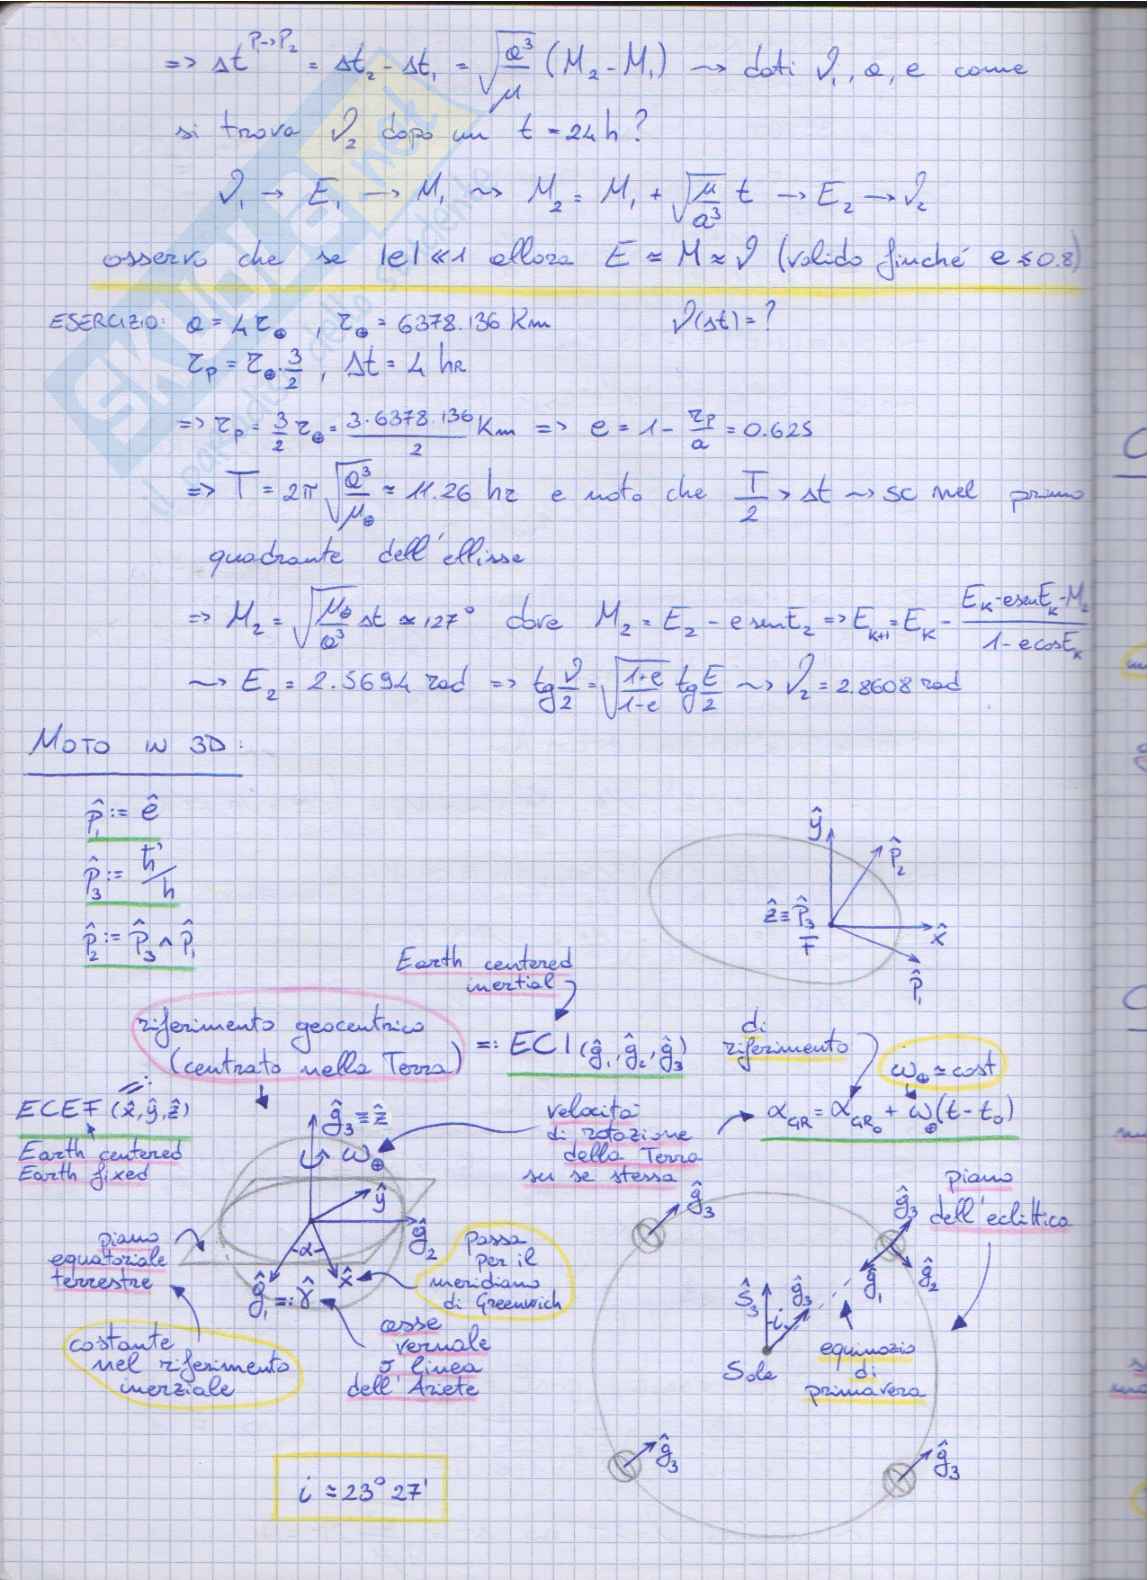 => Δt^{P→P₂} = Δt₂ - Δt₁ = √(a³/μ) (M₂ - M₁) ⇝ dati ϑ₁, a, e come
si trova ϑ₂ dopo un t = 24h?
ϑ₁ → E₁ → M₁ ⇝ M₂ = M₁ + √(μ/a³) t → E₂ → ϑ₂
osservo che se |e| ≪ 1 allora E ≈ M ≈ ϑ (valido finché e ≤ 0.8)
ESERCIZIO: a = 4r⊕ , r⊕ = 6378.136 Km ϑ(Δt) = ?
r_p = r⊕·3/2 , Δt = 4 hr
=> r_p = 3/2 r⊕ = 3·6378.136/2 Km => e = 1 - r_p/a = 0.625
=> T = 2π √(a³/μ⊕) ≈ 11.26 hr e noto che T/2 > Δt ⇝ sc nel primo
quadrante dell'ellisse
=> M₂ = √(μ⊕/a³) Δt ≈ 127° dove M₂ = E₂ - e senE₂ => E_{k+1} = E_k - (E_k - e senE_k - M₂)/(1 - e cosE_k)
⇝ E₂ = 2.5694 rad => tg ϑ/2 = √((1+e)/(1-e)) tg E/2 ⇝ ϑ₂ = 2.8608 rad
MOTO IN 3D:
p̂₁ := ê
p̂₃ := h⃗/h
p̂₂ := p̂₃ ∧ p̂₁
ŷ
p̂₂
ẑ ≡ p̂₃
F
x̂
p̂₁
Earth centered
inertial
riferimento geocentrico
(centrato nella Terra)
=: ECI (ĝ₁, ĝ₂, ĝ₃)
di
riferimento
ω⊕ ≈ cost
ECEF (x̂, ŷ, ẑ)
Earth centered
Earth fixed
ĝ₃ ≡ ẑ
ω⊕
velocità
di rotazione
della Terra
su se stessa
α_GR = α_GR₀ + ω⊕(t - t₀)
ŷ
ĝ₂
α
x̂
ĝ₁ =: γ̂
piano
equatoriale
terrestre
passa
per il
meridiano
di Greenwich
costante
nel riferimento
inerziale
asse
vernale
o linea
dell'Ariete
ĝ₃
ĝ₃
piano
dell'eclittica
ĝ₁
ĝ₂
ŝ₃
ĝ₃
i
Sole
equinozio
di
primavera
ĝ₃
ĝ₃
i ≈ 23° 27'